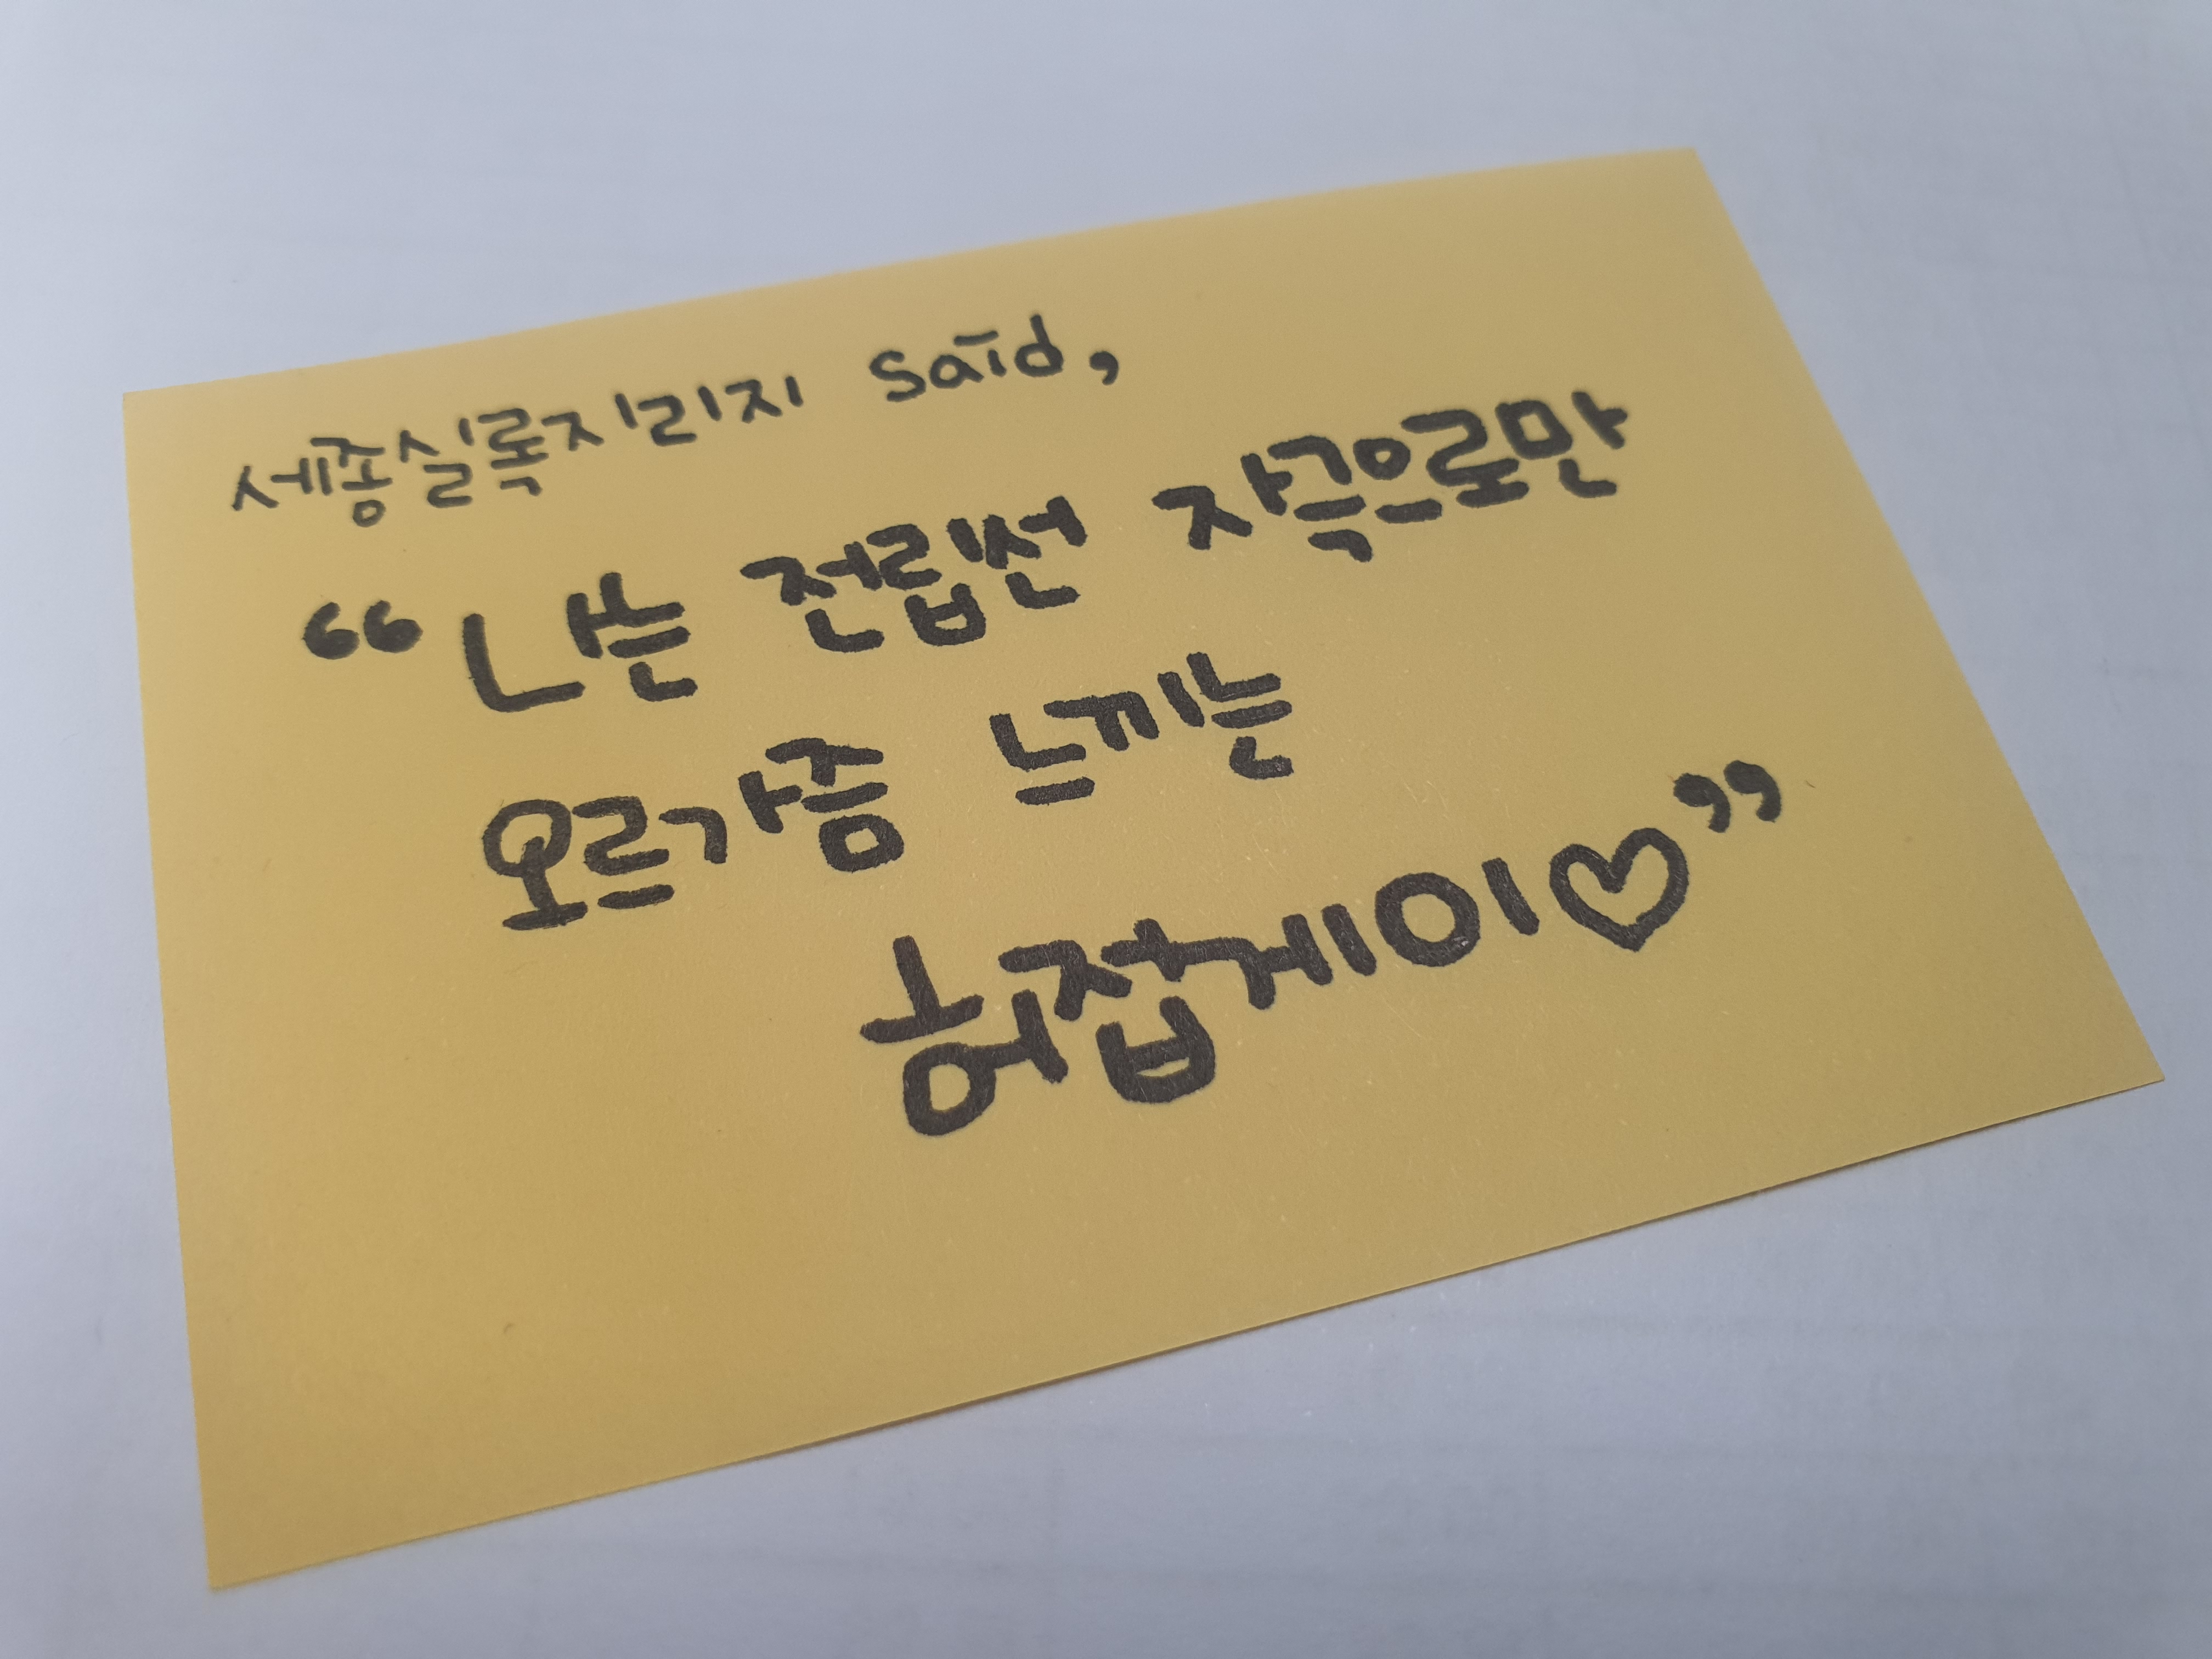 세종실록지리지 said,
“나는 전립썬 자극으로만
오르가즘 느끼는
허접게이♡”